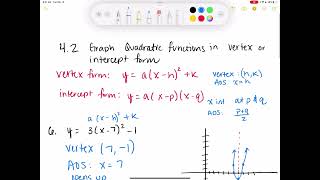 4.2 Graph Quadratic Functions in vertex or
intercept form
vertex form: y = a(x-h)² + k
vertex: (h,k)
AOS: x=h
intercept form: y = a(x-p)(x-q)
x int at p & q
AOS: p+q/2
a(x-h)² + k
6. y = 3(x-7)² - 1
vertex (7, -1)
AOS: x = 7
opens up